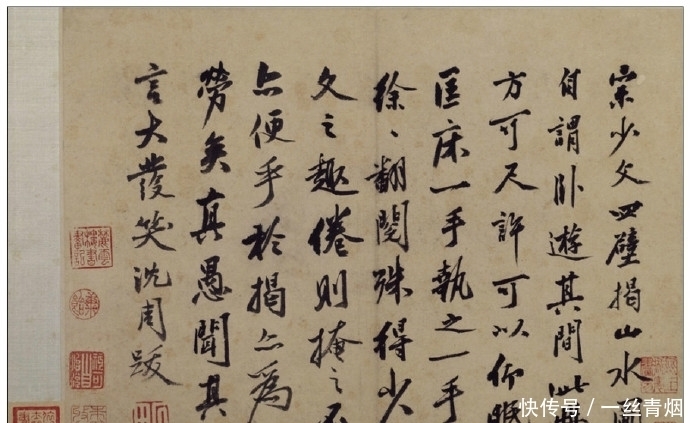 宗少文四壁揭山水圖
自謂卧遊其間此冊
方可尺許可以仰眠
匡床一手執之一手
徐〻翻閱殊得少
文之趣倦則掩之不
亦便乎於揭亦為
勞矣真愚聞其
言大發笑沈周跋
快传号 / 一丝青烟